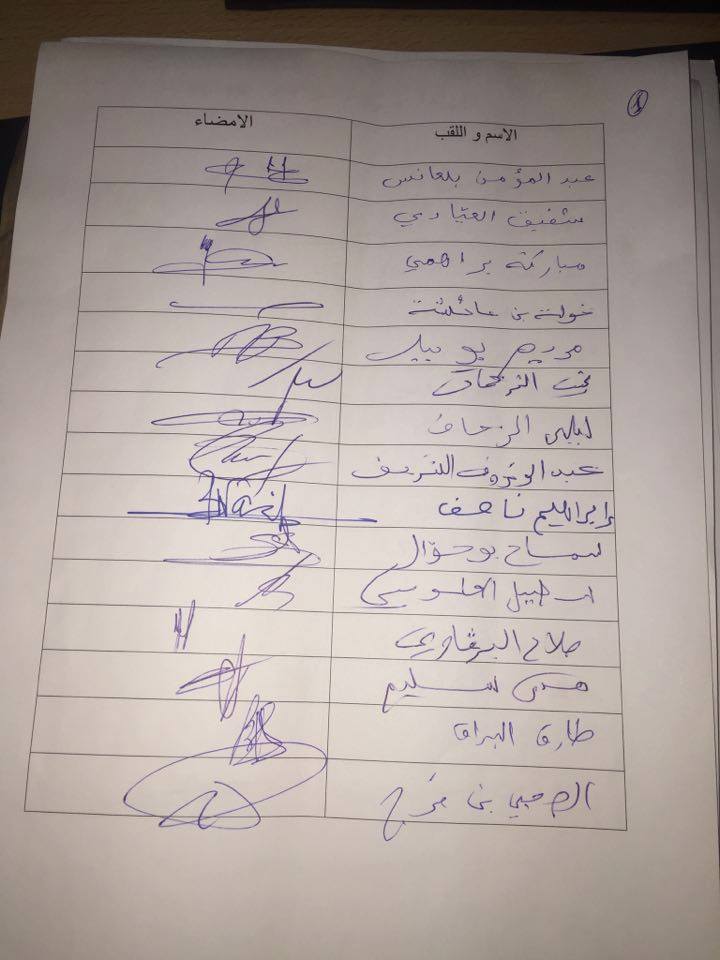 1
الاسم و اللقب الامضاء
عبد المؤمن بلعانس
شفيق العيادي
مباركة براهمي
خولة بن عائشة
مريم بوجبل
ليلى الزحاف
عبد الرؤوف الشريف
ابراهيم ناصف
سماح بوحوال
صلاح البرقاوي
هدى سليم
طارق البراق
الصحبي بن فرج